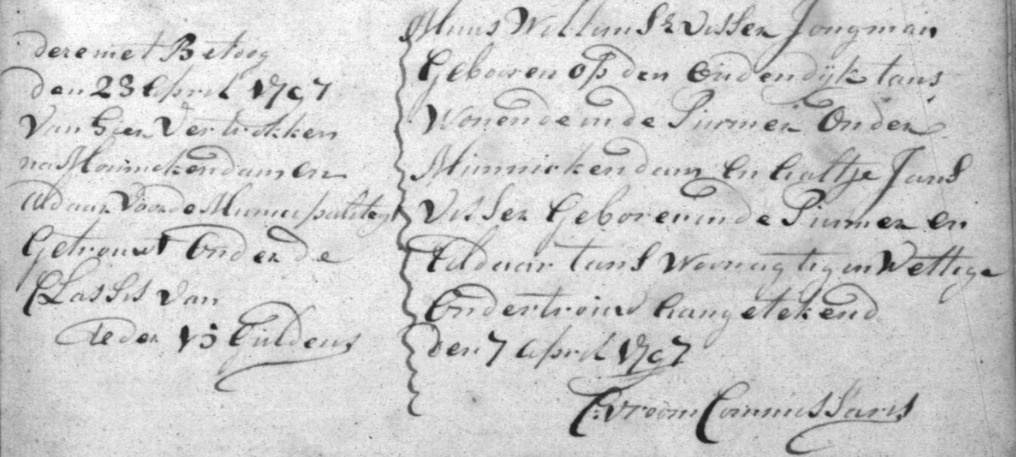 deze met Betoog
den 23 April 1797
Van hier Vertrokken
na Monnickendam en
aldaar Voor de Municipaliteyt
Getrouwt Onder de
Classis van
Ieder 15 Guldens
Willemsz Visser Jongman
Geboren op den Oudendijk tans
Wonende in de Purmer Onder
Munnickendam En Aaltje Jans
Visser Geboren in de Purmer en
Aldaar tans Woonagtig in Wettige
Ondertrouw Aangetekend
den 7 April 1797
C: Vroom Commissaris